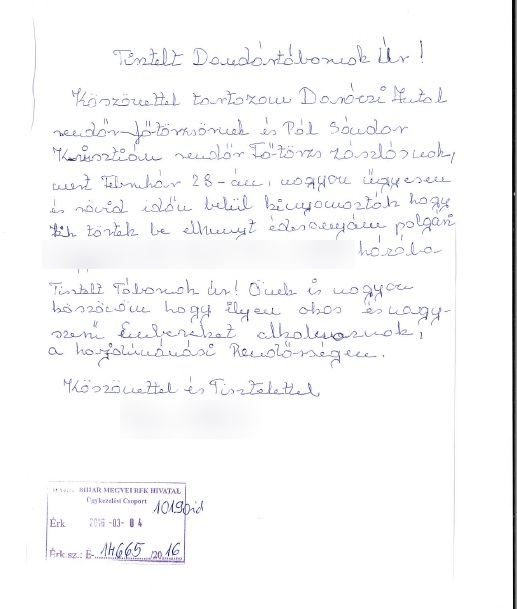 Tisztelt Dandártábornok Úr!
Köszönettel tartozom Daróczi Antal
rendőr főtörzsőrnek és Pál Sándor
Krisztián rendőr Fő-törzs zászlósnak,
mert Február 28-án, nagyon ügyesen
és rövid időn belül kinyomozták hogy
kik törtek be elhunyt édesanyám polgári
házába
Tisztelt Tábornok Úr! Önnek is nagyon
köszönöm hogy ilyen okos és nagy-
szerű Embereket alkalmaznak,
a hajdúnánási Rendőrségen.
Köszönettel és Tisztelettel
BIHAR MEGYEI RFK HIVATAL
Ügykezelési Csoport
Érk 2016 -03- 04
Érk.sz.: E- 14665 /20 16